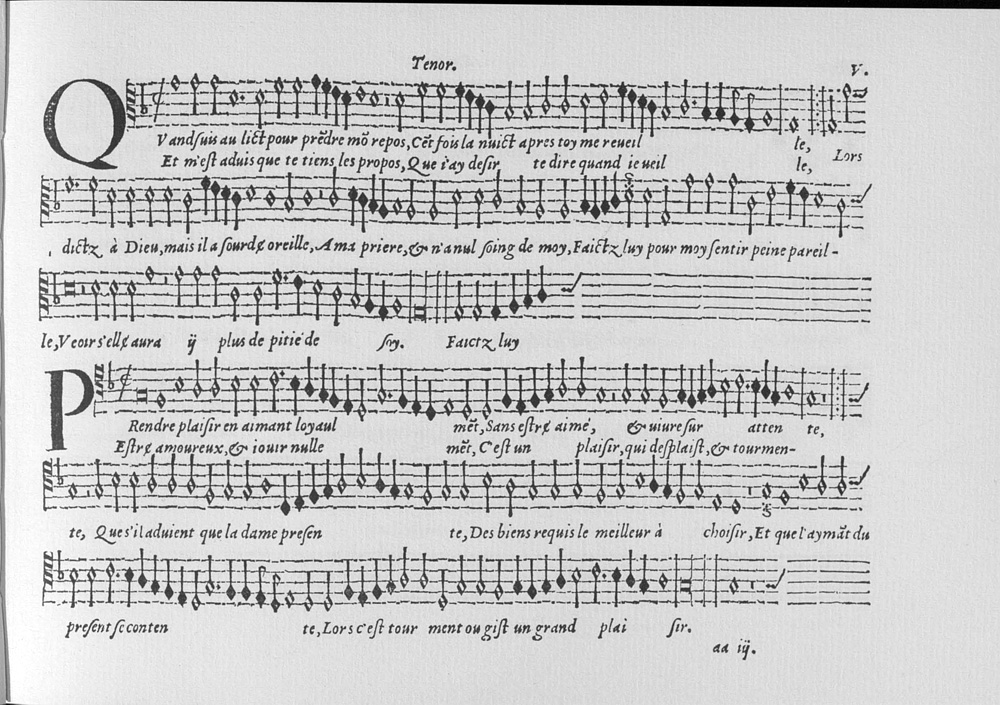 Tenor.
V.
QVand suis au lict pour prẽdre mõ repos, Cẽt fois la nuict apres toy me reueil le,
Et m'est aduis que te tiens les propos, Que i'ay desir te dire quand ie ueil le, Lors
dictz à Dieu, mais il a sourdɇ oreille, A ma priere, & n'a nul soing de moy, Faictz luy pour moy sentir peine pareil-
le, Veoir s'ellɇ aura ij plus de pitie de soy. Faictz luy
PRendre plaisir en aimant loyaul mẽt, Sans estrɇ aimé, & uiure sur atten te,
Estrɇ amoureux, & iouir nulle mẽt, C'est un plaisir, qui desplaist, & tourmen-
te, Que s'il aduient que la dame presen te, Des biens requis le meilleur à choisir, Et que l'aymãt du
present se conten te, Lors c'est tour ment ou gist un grand plai sir.
aa iij.